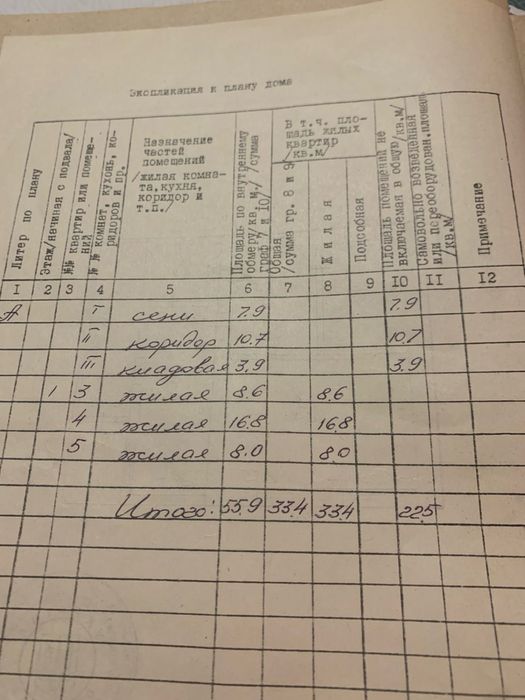 Экспликация к плану дома
Литер по плану
Этаж/начиная с подвала/
№№ квартир или помеще-
ний
№ № комнат, кухонь, ко-
ридоров и пр.
Назначение
частей
помещений
/жилая комна-
та,кухня,
коридор и
т.п./
Площадь по внутреннему
обмеру/кв. м./ /сумма
граф 7 и 10/
В т.ч. пло-
щадь жилых
квартир
/кв.м/
Общая
/сумма гр. 8 и 9/
Жилая
Подсобная
Площадь помещений не
включаемая в общую/кв.м/
Самовольно возведенная
или переоборудован.площадь
/кв.м/
Примечание
1 2 3 4 5 6 7 8 9 10 11 12
А I сени 7.9 7.9
II коридор 10.7 10.7
III кладовая 3.9 3.9
1 3 жилая 8.6 8.6
4 жилая 16.8 16.8
5 жилая 8.0 8.0
Итого: 55.9 33.4 33.4 22.5